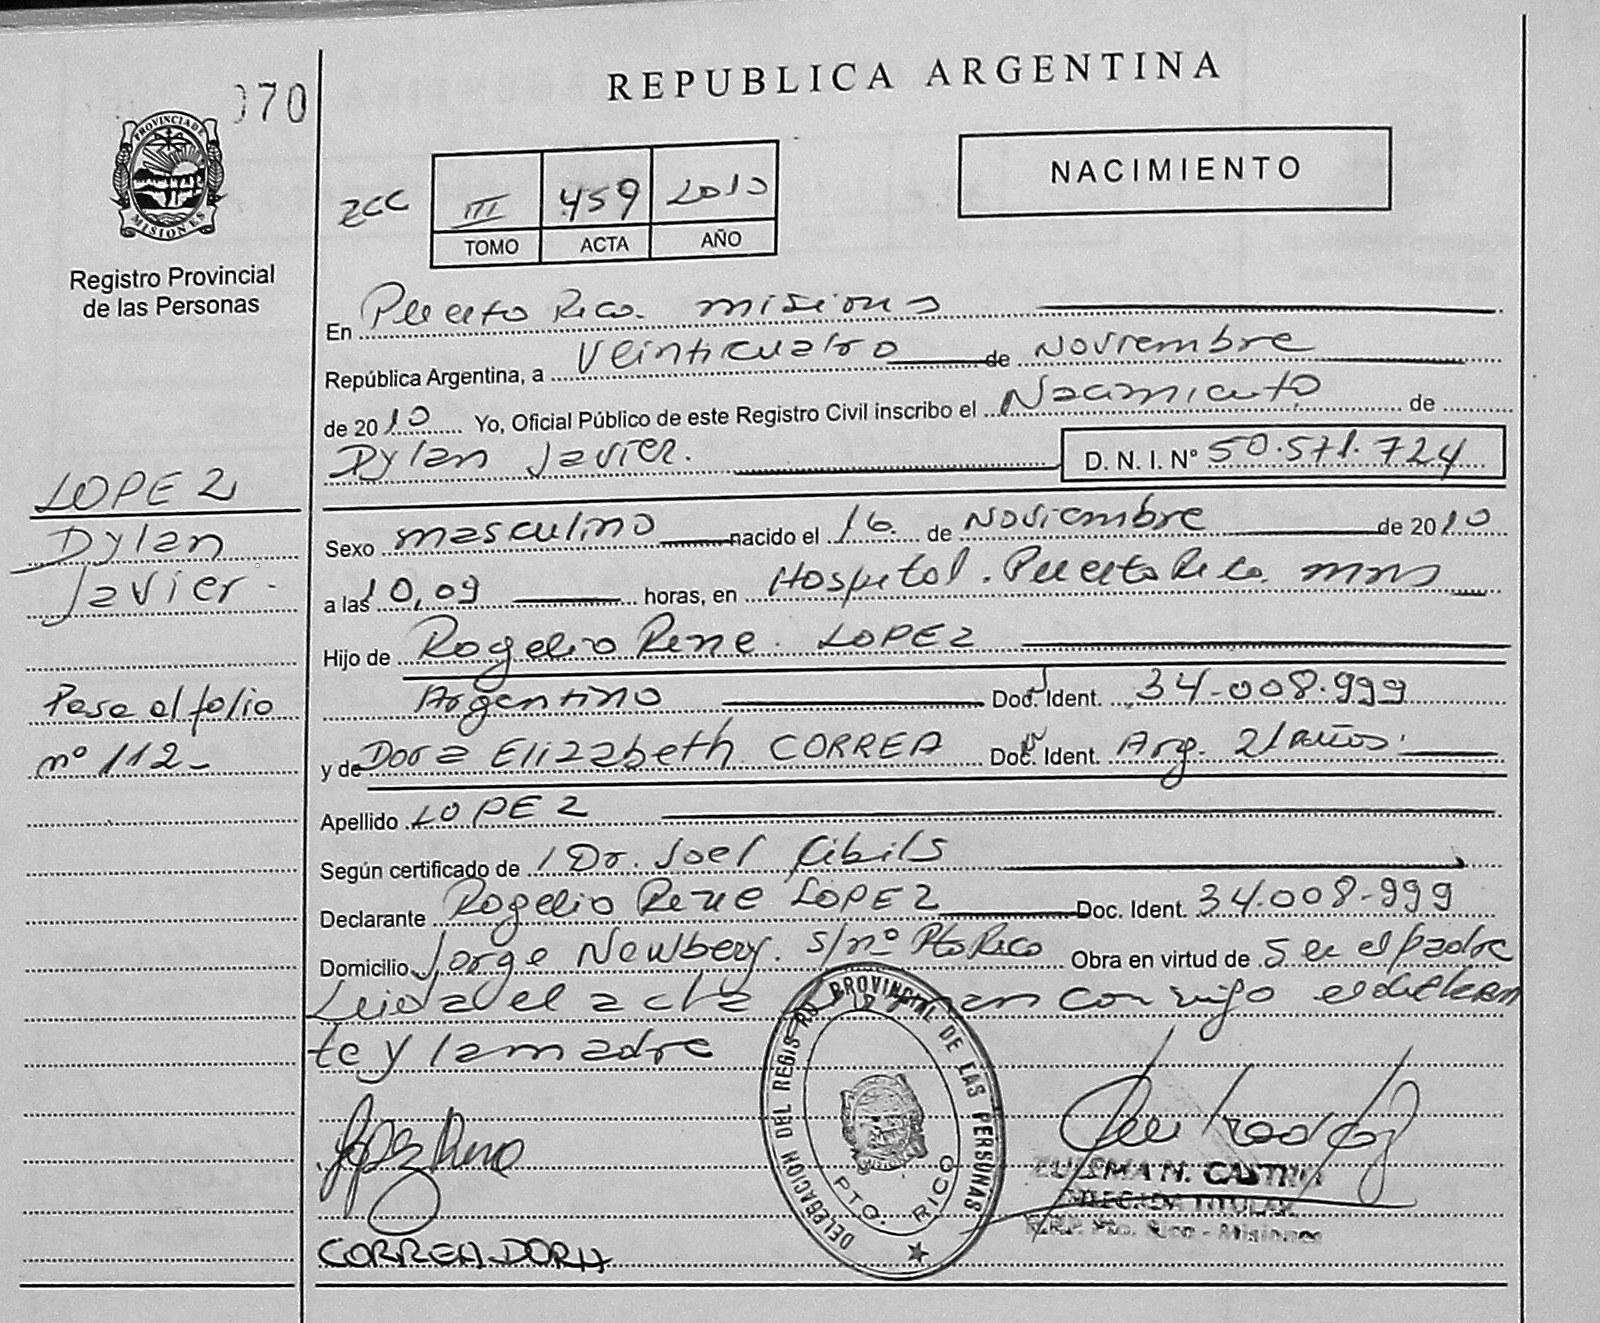 070
REPUBLICA ARGENTINA
PROVINCIA DE
MISIONES
Registro Provincial
de las Personas
NACIMIENTO
III 459 2010
TOMO ACTA AÑO
En Puerto Rico. misiones
República Argentina, a Veinticuatro de Noviembre
de 2010 Yo, Oficial Público de este Registro Civil inscribo el Nacimiento de
Dylan Javier. D. N. I. Nº 50.571.724
LOPEZ
Dylan
Javier.
Sexo masculino nacido el 16 de Noviembre de 2010
a las 10,09 horas, en Hospital. Puerto Rico. mns
Hijo de Rogelio Rene. LOPEZ
Pase al folio
nº 112-
Argentino Doc. Ident. 34.008.999
y de Dora Elizabeth CORREA Doc. Ident. Arg. 21 Años.
Apellido LOPEZ
Según certificado de Dr. Joel Cibils
Declarante Rogelio Rene LOPEZ Doc. Ident. 34.008.999
Domicilio Jorge Newbery. s/nº Pto Rico Obra en virtud de Ser el padre
Leida el acta conmigo el declaran
te y la madre
Lopez Rene
CORREA DORA
DELEGACION DEL REGISTRO PROVINCIAL DE LAS PERSONAS
PTO. RICO
ZULEMA N. CASTRO
DELEGADA TITULAR
R.R.P. Pto. Rico - Misiones